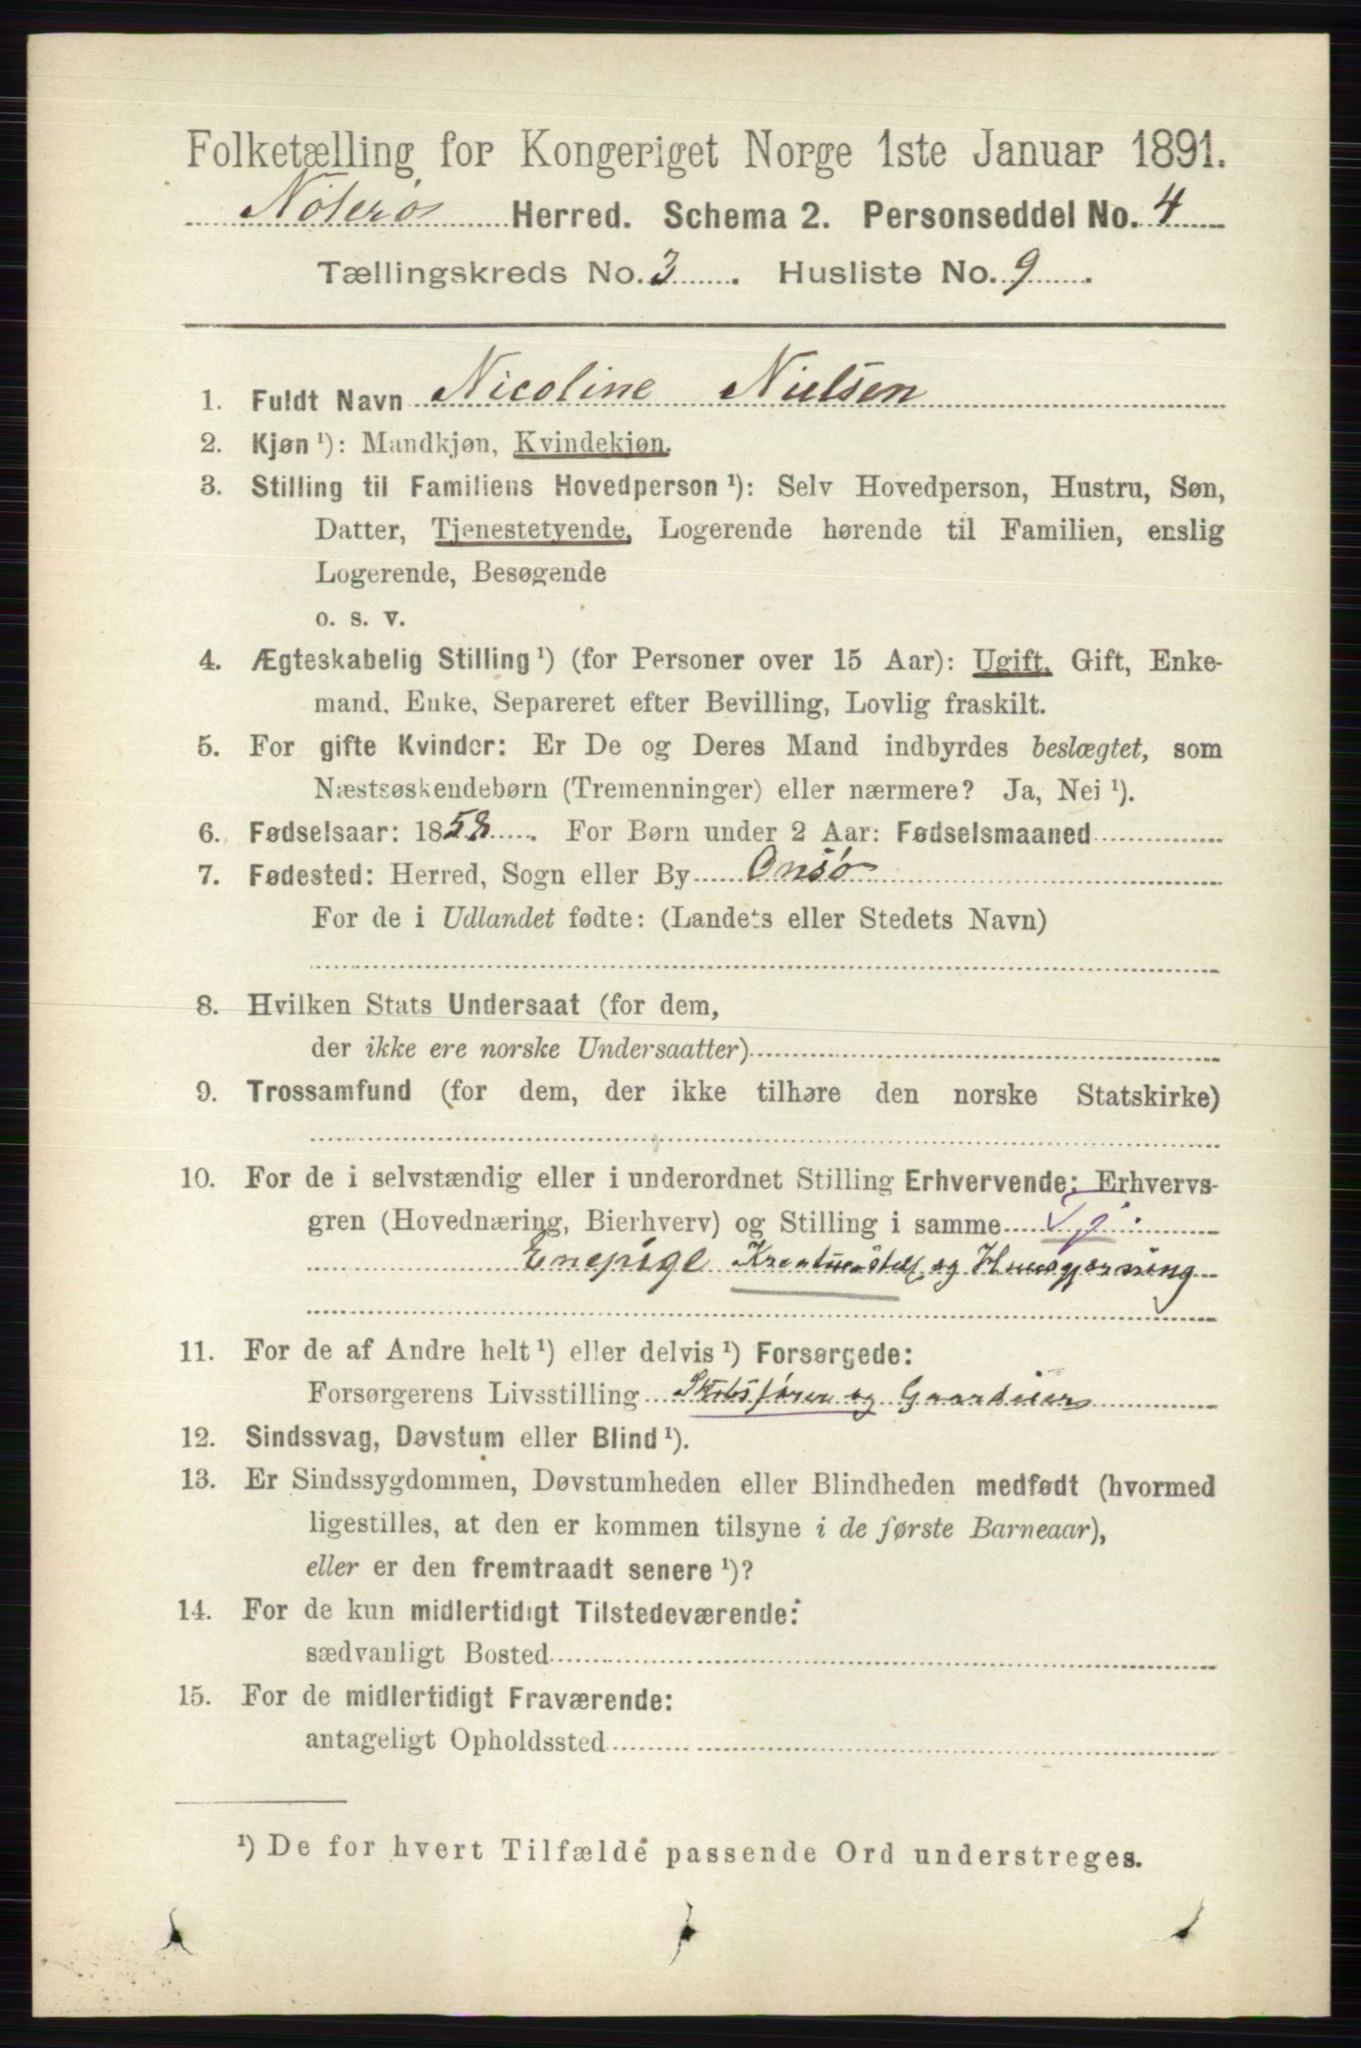 Folketælling for Kongeriget Norge 1ste Januar 1891.
Nøterø Herred. Schema 2. Personseddel No. 4
Tællingskreds No. 3. Husliste No. 9.
1. Fuldt Navn Nicoline Nielsen
2. Kjøn ¹): Mandkjøn, Kvindekjøn.
3. Stilling til Familiens Hovedperson ¹): Selv Hovedperson, Hustru, Søn,
Datter, Tjenestetyende, Logerende hørende til Familien, enslig
Logerende, Besøgende
o. s. v.
4. Ægteskabelig Stilling ¹) (for Personer over 15 Aar): Ugift, Gift, Enke-
mand, Enke, Separeret efter Bevilling, Lovlig fraskilt.
5. For gifte Kvinder: Er De og Deres Mand indbyrdes beslægtet, som
Næstsøskendebørn (Tremenninger) eller nærmere? Ja, Nei ¹).
6. Fødselsaar: 1858. For Børn under 2 Aar: Fødselsmaaned
7. Fødested: Herred, Sogn eller By Onsø
For de i Udlandet fødte: (Landets eller Stedets Navn)
8. Hvilken Stats Undersaat (for dem,
der ikke ere norske Undersaatter)
9. Trossamfund (for dem, der ikke tilhøre den norske Statskirke)
10. For de i selvstændig eller i underordnet Stilling Erhvervende: Erhvervs-
gren (Hovednæring, Bierhverv) og Stilling i samme Tj.
Enepige Kreaturstel og Huusgjerning
11. For de af Andre helt ¹) eller delvis ¹) Forsørgede:
Forsørgerens Livsstilling Skibsfører og Gaardeier
12. Sindssvag, Døvstum eller Blind ¹).
13. Er Sindssygdommen, Døvstumheden eller Blindheden medfødt (hvormed
ligestilles, at den er kommen tilsyne i de første Barneaar),
eller er den fremtraadt senere ¹)?
14. For de kun midlertidigt Tilstedeværende:
sædvanligt Bosted
15. For de midlertidigt Fraværende:
antageligt Opholdssted
¹) De for hvert Tilfælde passende Ord understreges.